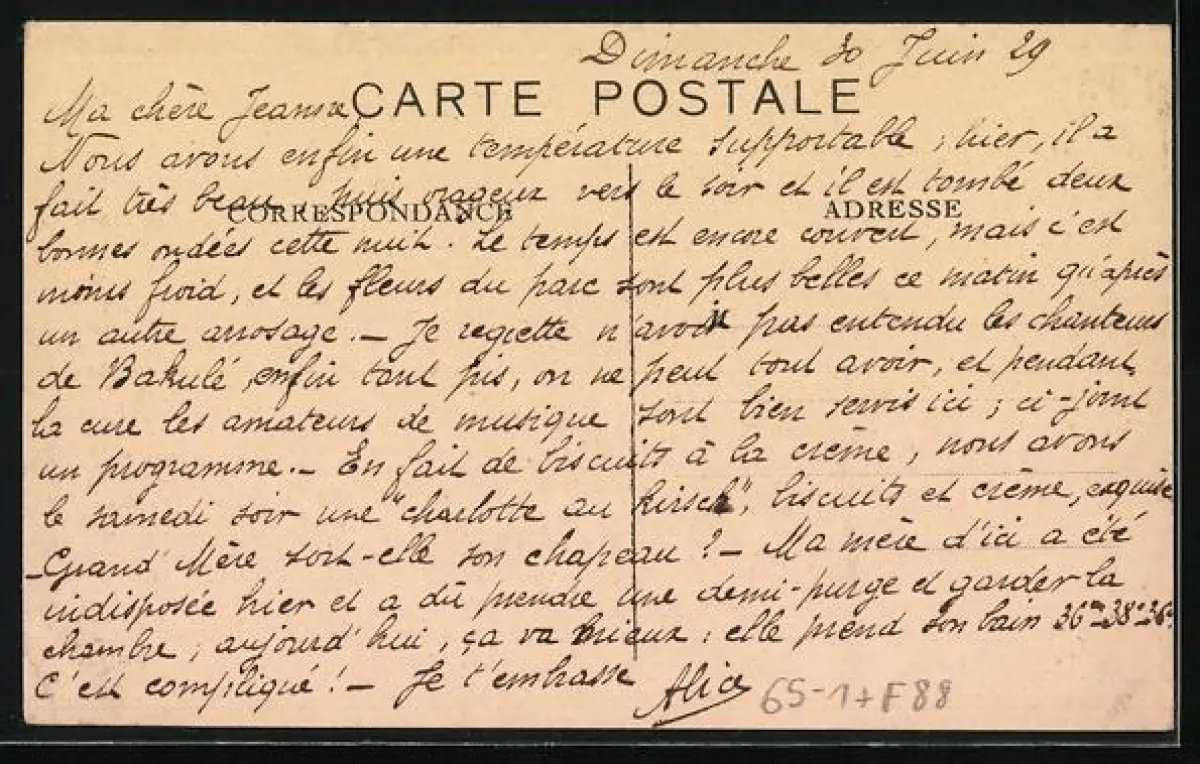 Dimanche 30 Juin 29
CARTE POSTALE
Ma chère Jeanne
Nous avons enfin une température supportable ; hier, il a
fait très beau puis orageux vers le soir et il est tombé deux
CORRESPONDANCE
ADRESSE
bonnes ondées cette nuit. Le temps est encore couvert, mais c'est
moins froid, et les fleurs du parc sont plus belles ce matin qu'après
un autre arrosage. — Je regrette n'avoir pas entendu les chanteurs
de Bakulé, enfin tant pis, on ne peut tout avoir, et pendant
la cure les amateurs de musique sont bien servis ici ; ci-joint
un programme. — En fait de biscuits à la crème, nous avons
le samedi soir une "charlotte au kirsch", biscuits et crème, exquise
— Grand' Mère sort-elle son chapeau ? — Ma mère d'ici a été
indisposée hier et a dû prendre une demi-purge et garder la
chambre ; aujourd'hui, ça va mieux : elle prend son bain 36°-38°-36°.
C'est compliqué ! — Je t'embrasse
Alice
65-1+F88